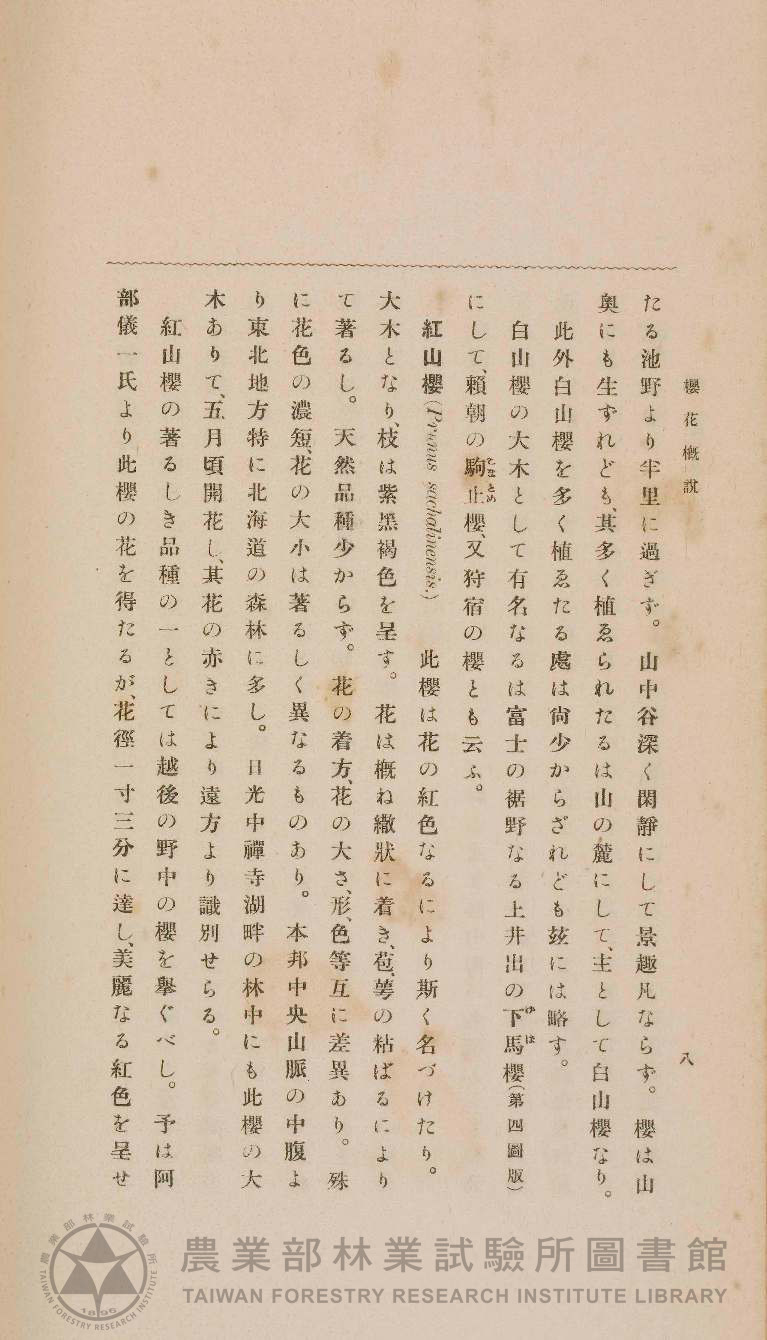 櫻花槪說
八
たる池野より半里に過ぎず。山中谷深く閑靜にして景趣凡ならず。櫻は山
奥にも生ずれども、其多く植ゑられたるは山の麓にして、主として白山櫻なり。
此外白山櫻を多く植ゑたる處は尙少からざれども玆には略す。
白山櫻の大木として有名なるは富士の裾野なる上井出の下馬櫻(第四圖版)
にして、賴朝の駒止櫻、又狩宿の櫻とも云ふ。
紅山櫻(Prunus sachalinensis.) 此櫻は花の紅色なるにより斯く名づけたり。
大木となり、枝は紫黑褐色を呈す。花は槪ね繖狀に着き、苞、萼の粘ばるにより
て著るし。天然品種少からず。花の着方、花の大さ、形、色等互に差異あり。殊
に花色の濃短、花の大小は著るしく異なるものあり。本邦中央山脈の中腹よ
り東北地方特に北海道の森林に多し。日光中禪寺湖畔の林中にも此櫻の大
木ありて、五月頃開花し、其花の赤きにより遠方より識別せらる。
紅山櫻の著るしき品種の一としては越後の野中の櫻を擧ぐべし。予は阿
部儀一氏より此櫻の花を得たるが、花徑一寸三分に達し、美麗なる紅色を呈せ
農業部林業試驗所圖書館
TAIWAN FORESTRY RESEARCH INSTITUTE LIBRARY
農業部林業試驗所
TAIWAN FORESTRY RESEARCH INSTITUTE
1896